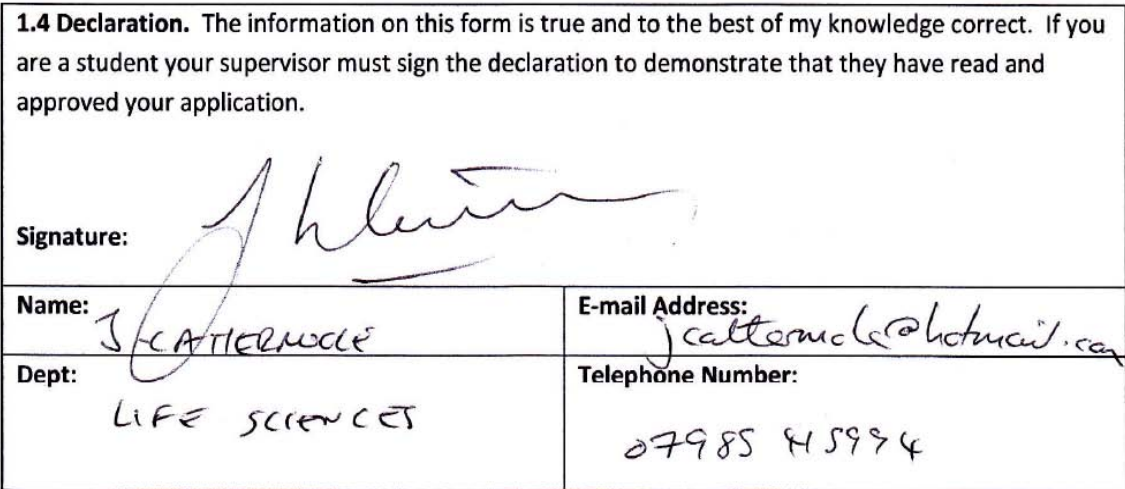 1.4 Declaration. The information on this form is true and to the best of my knowledge correct. If you
are a student your supervisor must sign the declaration to demonstrate that they have read and
approved your application.
Signature:
Name: J CATTERMOLE
E-mail Address: jcattermole@hotmail.com
Dept: LIFE SCIENCES
Telephone Number: 07985